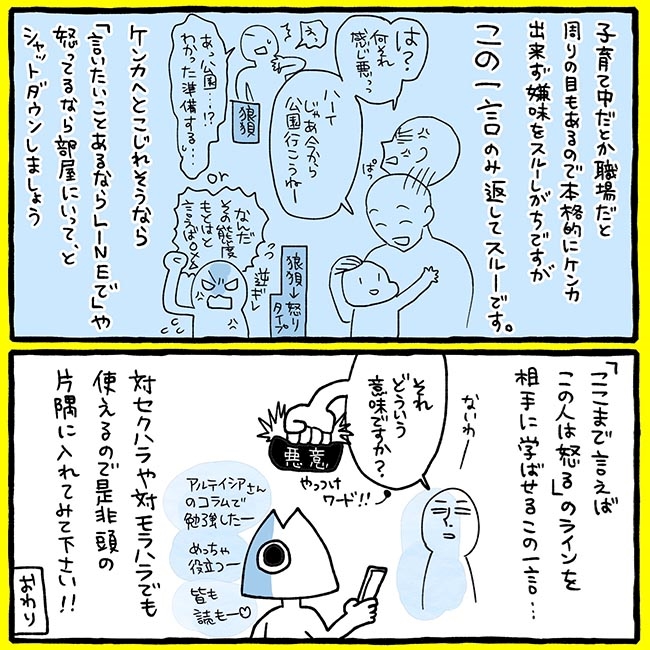 子育て中だとか職場だと
周りの目もあるので本格的にケンカ
出来ず嫌味をスルーしがちですが
この一言のみ返してスルーです。
は?
何それ
感じ悪っ
ぱっ
ハーイ
じゃあ今から
公園行こうねー
えっ
あっ公園…!?
わかった準備する…
狼狽
or
なんだ
その態度
もとはと
言えば○×△
逆ギレ
狼狽→怒り
タイプ
ケンカへとこじれそうなら
「言いたいことあるならLINEで」や
怒ってるなら部屋にいて、と
シャットダウンしましょう
「ここまで言えば
この人は怒る」のラインを
相手に学ばせるこの一言…
ないわー
それ
どういう
意味ですか?
悪意
やっつけ
ワード!!
アルテイシアさん
のコラムで
勉強したー
めっちゃ
役立つー
皆も
読もー♡
対セクハラや対モラハラでも
使えるので是非頭の
片隅に入れてみて下さい!!
おわり